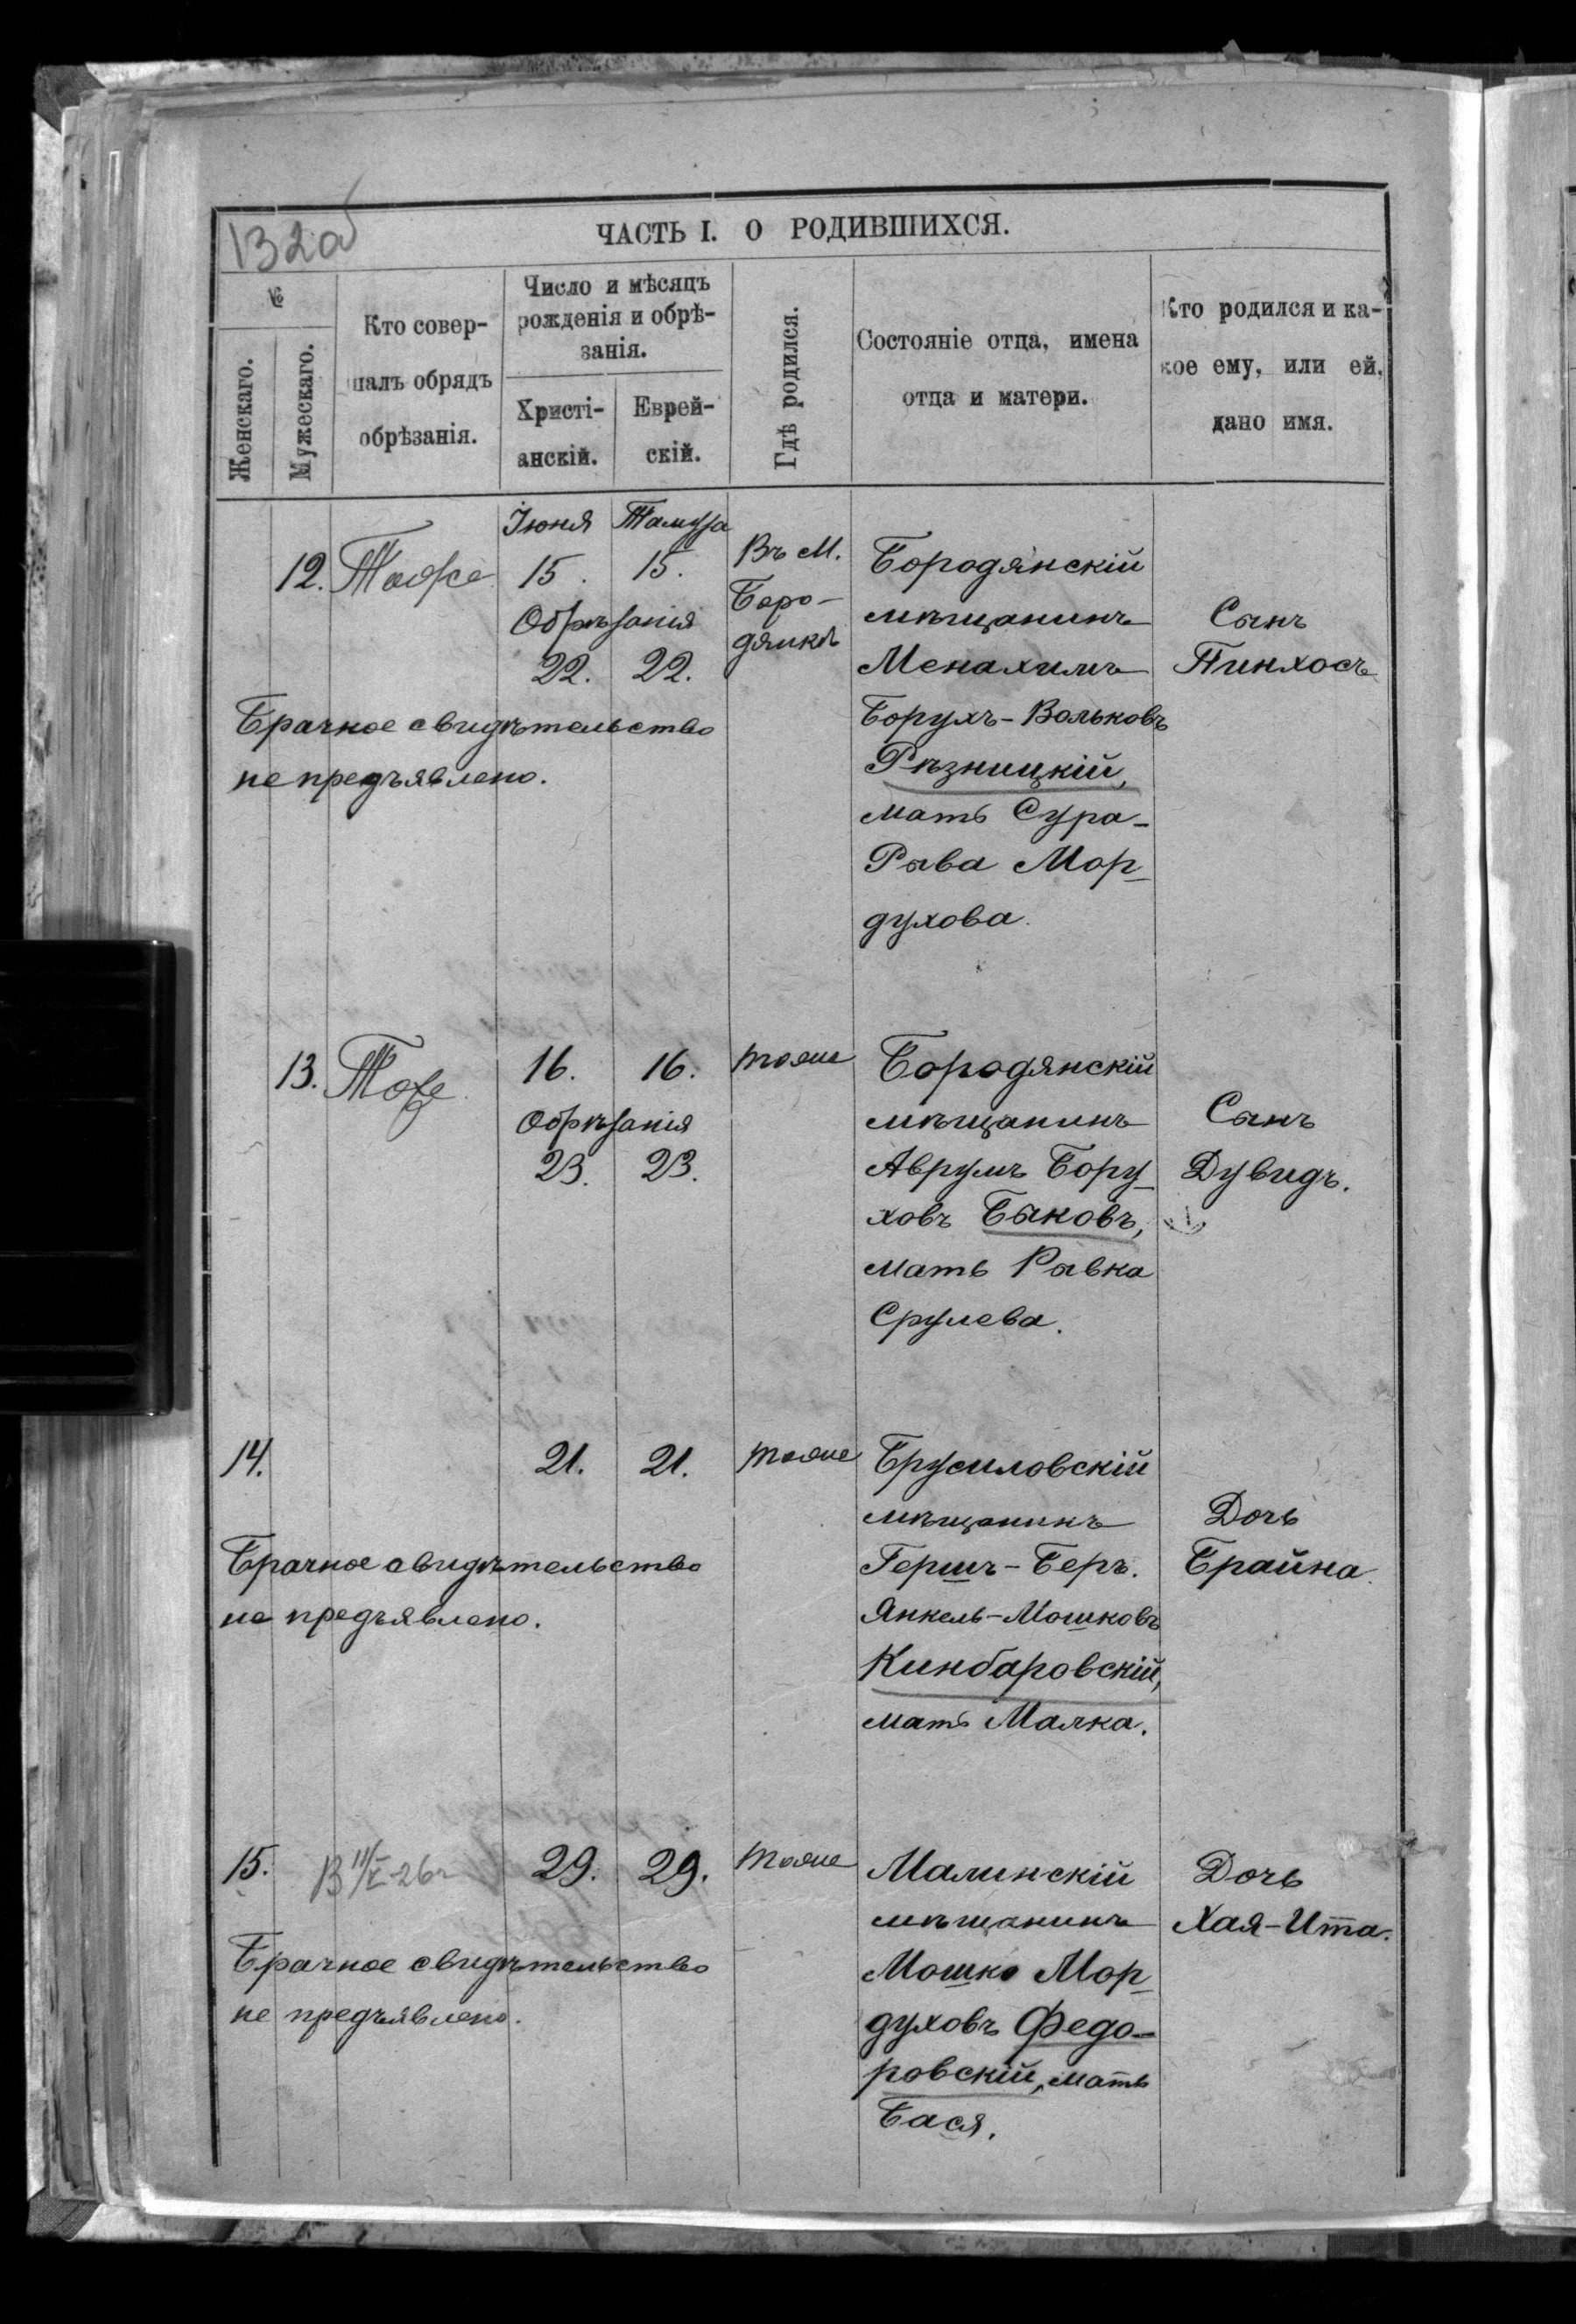 132об
ЧАСТЬ I. О РОДИВШИХСЯ.
№
Женскаго.
Мужескаго.
Кто совер-
шалъ обрядъ
обрѣзанія.
Число и мѣсяцъ
рожденія и обрѣ-
занія.
Христі-
анскій.
Еврей-
скій.
Гдѣ родился.
Состояніе отца, имена
отца и матери.
Кто родился и ка-
кое ему, или ей,
дано имя.
Іюня Тамуза
12. Тоже 15. 15.
Обрѣзанія
22. 22.
Въ М.
Боро-
дянкѣ
Бородянскій
мѣщанинъ
Менахимъ
Борухъ-Вольковъ
Рѣзницкій,
мать Сура-
Рыва Мор-
духова.
Сынъ
Пинхосъ
Брачное свидѣтельство
не предъявлено.
13. Тоже 16. 16. тоже
Обрѣзанія
23. 23.
Бородянскій
мѣщанинъ
Аврумъ Бору-
ховъ Быковъ,
мать Рывка
Срулева.
Сынъ
Дувидъ.
14. 21. 21. тоже
Брусиловскій
мѣщанинъ
Гершъ-Беръ.
Янкель-Мошковъ
Кинбаровскій,
мать Малка.
Дочь
Брайна
Брачное свидѣтельство
не предъявлено.
15. 29. 29. тоже
Малинскій
мѣщанинъ
Мошко Мор-
духовъ Федо-
ровскій, мать
Бася.
Дочь
Хая-Ита.
Брачное свидѣтельство
не предъявлено.